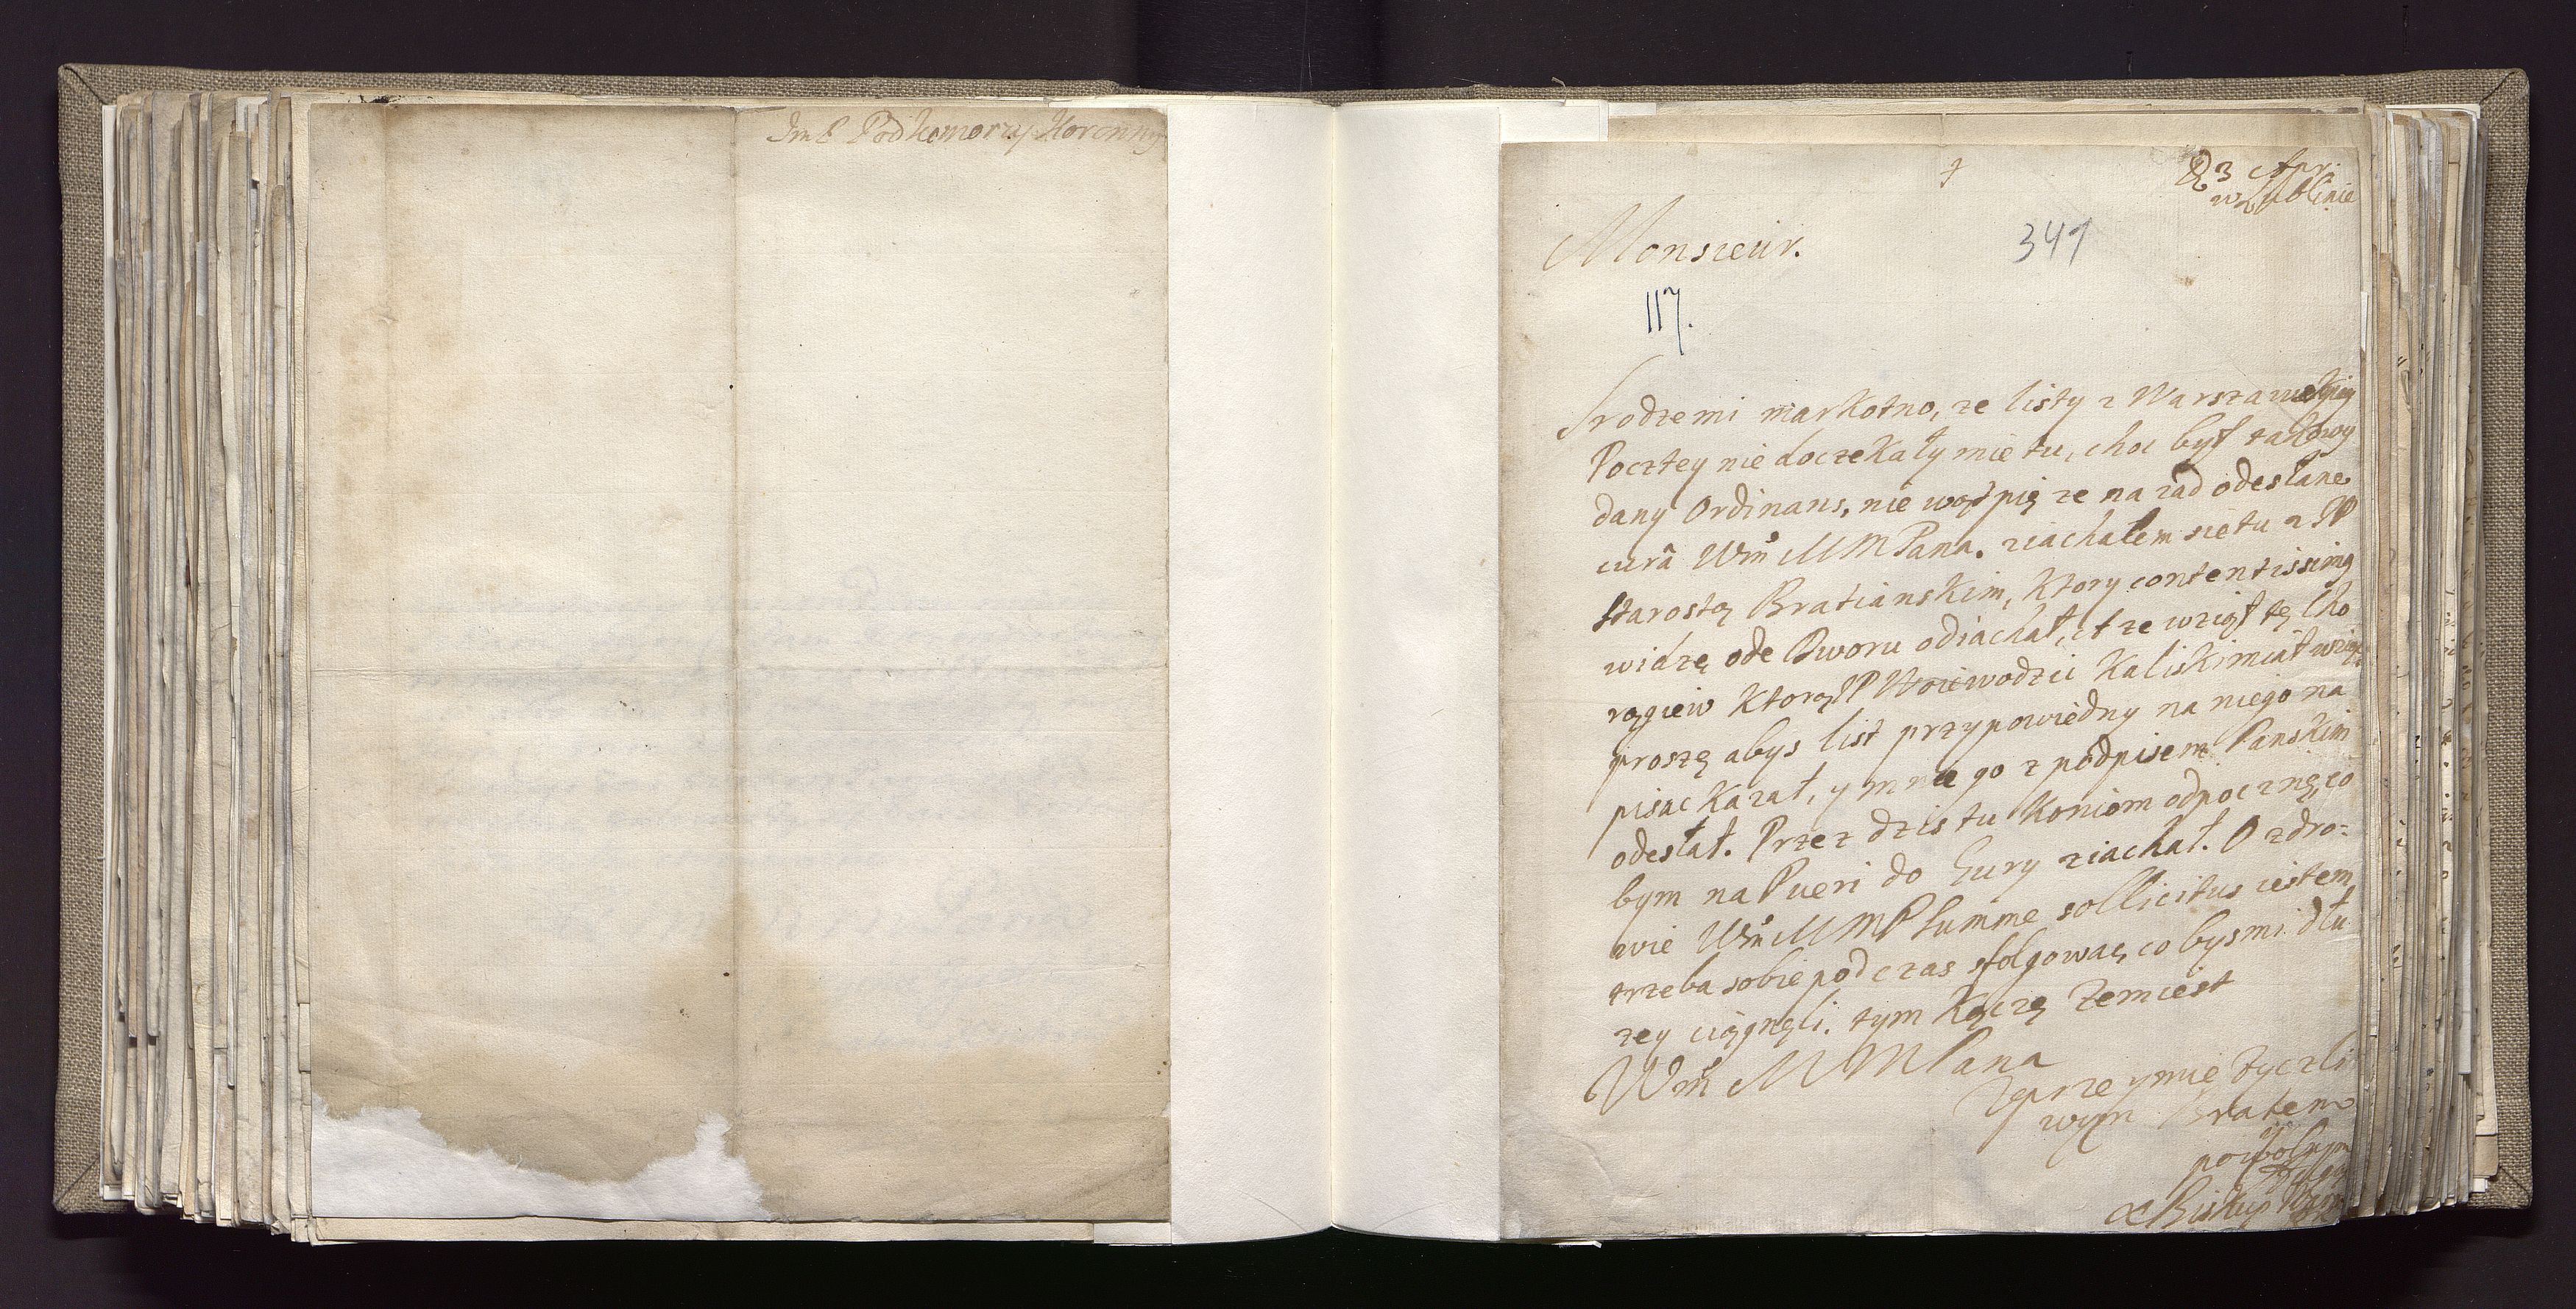 Im P Podkomorzy Koronny
D 3 Apr:
w Lublinie
Monsieur.
341
117.
Srodze mi markotno, ze listy z Warszawskiey
Pocztey nie doczekały mie tu, choc był takowy
dany Ordinans, nie wątpię ze na zad odesłane
curâ Wm MMPana. ziachałem sie tu z JP
Starostą Bratianskim, Ktory contentissimg
widzę ode Dworu odiachał, et ze wziął tę Cho
rągiew Ktorą JP Woiewodzic Kaliski miał wziąc
proszę abys list przypowiedny na niego na
pisac Kazał, y mnie go z podpisem Panskim
odesłał. Przez dzis tu Koniom odpoczną, co
bym na Pueri do Gury ziachał. O zdro:
wie Wm MMP summe sollicitus iestem
trzeba sobie pod czas sfolgowac, co bysmi dłu
zey ciągnęli. tym Kączę Zemiest
Wm MMPana
Zeprzeymie Zyczli
wym Bratem
y
powolnym
Biskup